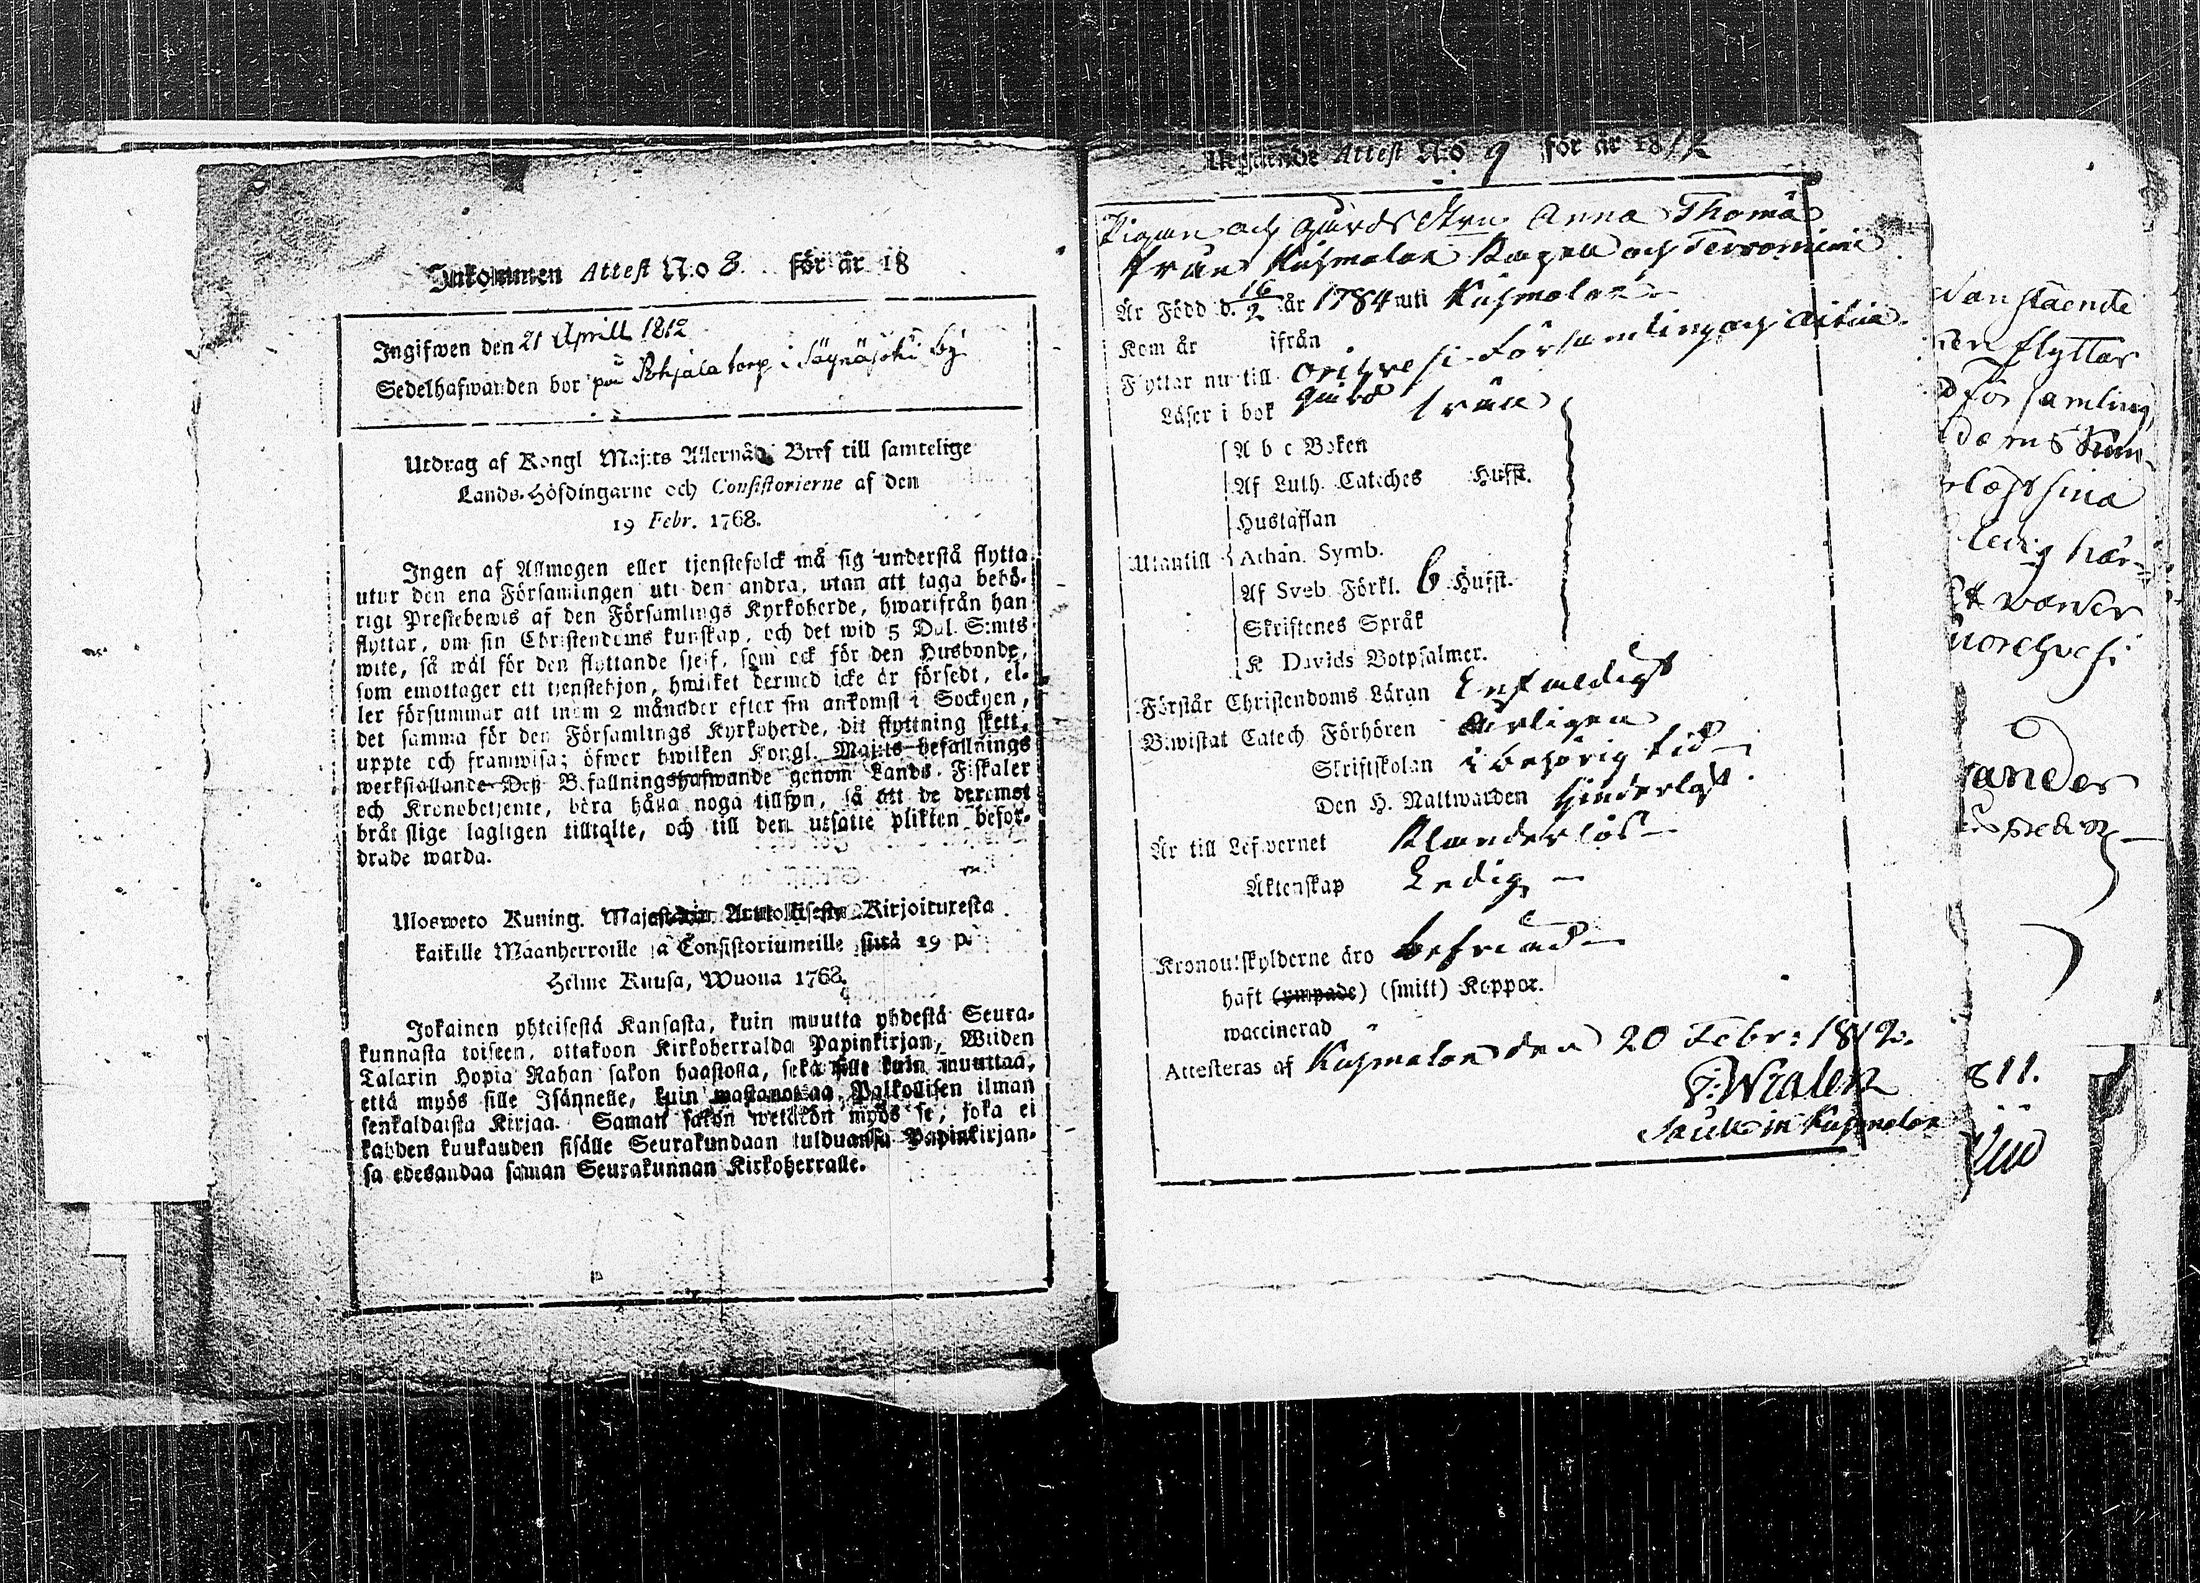 Inkommen Attest N:o 8. för år 18
Ingifwen den 21 Aprill 1812
Sedelhafwanden bor på Pohjala torp i Säynäjoki by
Utdrag af Kongl Maj:ts Allernåd. Bref till samtelige
Lands-Höfdingarne och Consistorierne af den
19 Febr. 1768.
Ingen af Allmogen eller tjenstefolck må sig understå flytta
utur den ena Församlingen uti den andra, utan att taga behö-
rigt Prestebewis af den Församlings Kyrkoherde, hwarifrån han
flyttar, om sin Christendoms kunskap, och det wid 5 Dal. S:mts
wite, så wäl för den flyttande sjelf, som ock för den Husbonde,
som emottager ett tjenstehjon, hwilket dermed icke är försedt, el-
ler försummar att inom 2 månader efter sin ankomst i Socknen,
det samma för den Församlings Kyrkoherde, dit flyttning skett,
uppte och framwisa; öfwer hwilken Kongl. Maj:ts befallnings
werkställande Deß Befallningshafwande genom Lands-Fiskaler
och Kronobetjente, böra hålla noga tillsyn, så att de deremot
bråtslige lagligen tilltalte, och till den utsatte plikten befor-
drade warda.
Ulosweto Kuning. Majestetin Armollisesta Kirjoituresta
kaikille Maanherroille ja Consistoriumeille siitä 19 p.
Helme Kuusa, Wuonna 1768.
Jokainen yhteisestä Kansasta, kuin muutta yhdestä Seura-
kunnasta toiseen, ottakoon Kirkoherralda Papinkirjan, Wiiden
Talarin Hopia Rahan sakon haastolla, sekä sille kuin muuttaa,
että myös sille Isännelle, kuin wastanottaa Palkollisen ilman
senkaldaista Kirjaa. Saman sakon wetäkön myös se, joka ei
kahden kuukauden sisälle Seurakundaan tulduansa Papinkirjan-
sa edesandaa saman Seurakunnan Kirkoherralle.
Utgående Attest N:o 9 för år 1812
Pigan och Anna Thomä
från Kuhmalax Kapell och
Är Född d. 16/2 år 1784 uti Kuhmalax
Kom år ifrån
Flyttar nu till Orihvesi Församling och
Läser i bok
A b c Boken
Af Luth. Cateches Hufst.
Hustaflan
Utantill Athan. Symb.
Af Sveb. Förkl. 6 Hufst.
Skriftenes Språk
K Davids Botpsalmer.
Förstår Christendoms Läran Enfaldigt
Biwistat Catech Förhören Årligen
Skriftskolan i behörig tid
Den H. Nattwarden hinderlöst
Är till Lefwernet Klanderlös
Äktenskap Ledig
Kronoutskylderne äro befriad
haft (ympade) (smitt) Koppor.
waccinerad
Attesteras af Kuhmalax den 20 Febr: 1812.
in Kuhmalax
stående
flyttar
församling
sina
ledig här-
Orehvesi
811.